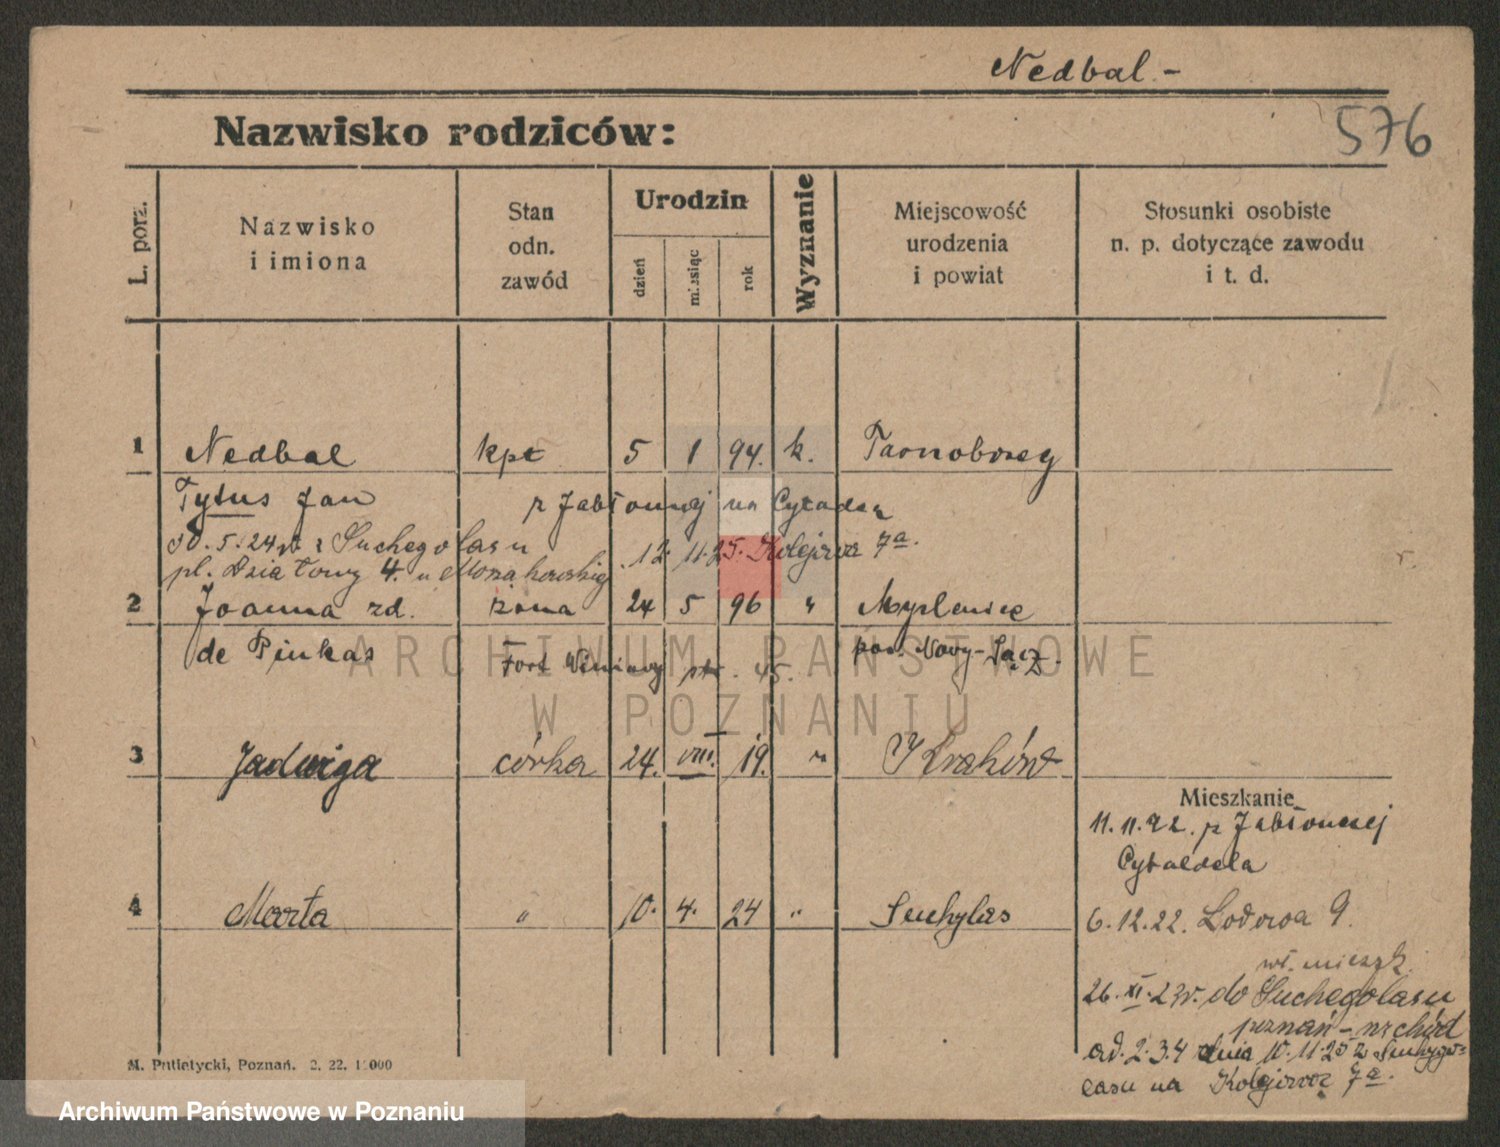 Nedbal -
576
Nazwisko rodziców:
L. porz.
Nazwisko
i imiona
Stan
odn.
zawód
Urodzin
dzień
miesiąc
rok
Wyznanie
Miejscowość
urodzenia
i powiat
Stosunki osobiste
n. p. dotyczące zawodu
i t. d.
1 Nedbal kpt 5 1 94. k. Tarnobrzeg
Tytus Jan z Jabłonnej na Cytadelę
30.5.24 z Suchegolasu 12.11.25. Kolejowa 7a.
pl. Działowy 4. u
2 Joanna zd. żona 24 5 96 " Myślenice
de Pinkas Fort Winiary 45. pow. Nowy-Sącz.
ARCHIWUM PAŃSTWOWE
W POZNANIU
3 Jadwiga córka 24. VIII. 19. " Kraków
Mieszkanie
11.11.22. z Jabłonnej
Cytadela
4 Marta " 10. 4. 24 " Suchylas
6.12.22. Lodowa 9.
wł. mieszk.
26.XI.23r. do Suchegolasu
poznań - zachód
ad. 2.3.4 dnia 10.11.25 z Suchego=
lasu na Kolejową 7a.
M. Putiatycki, Poznań. 2. 22. 1 000
Archiwum Państwowe w Poznaniu